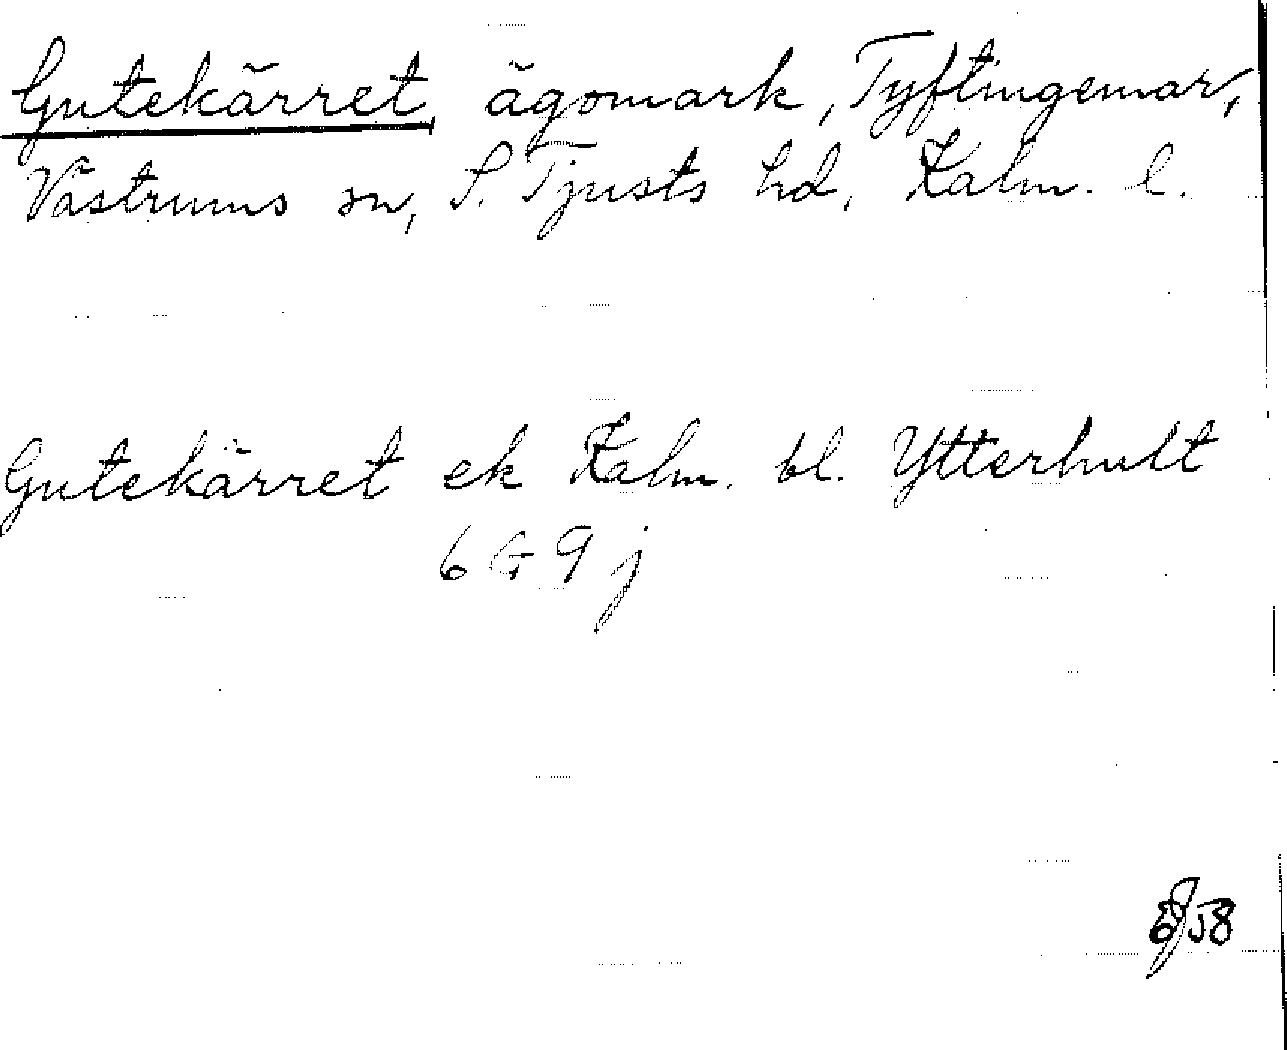 Gutekärret, ägomark, Tyftingemar,
Västrums sn, S. Tjusts hd, Kalm. l.
Gutekärret ek Kalm. bl. Ytterhult
6 G 9 j